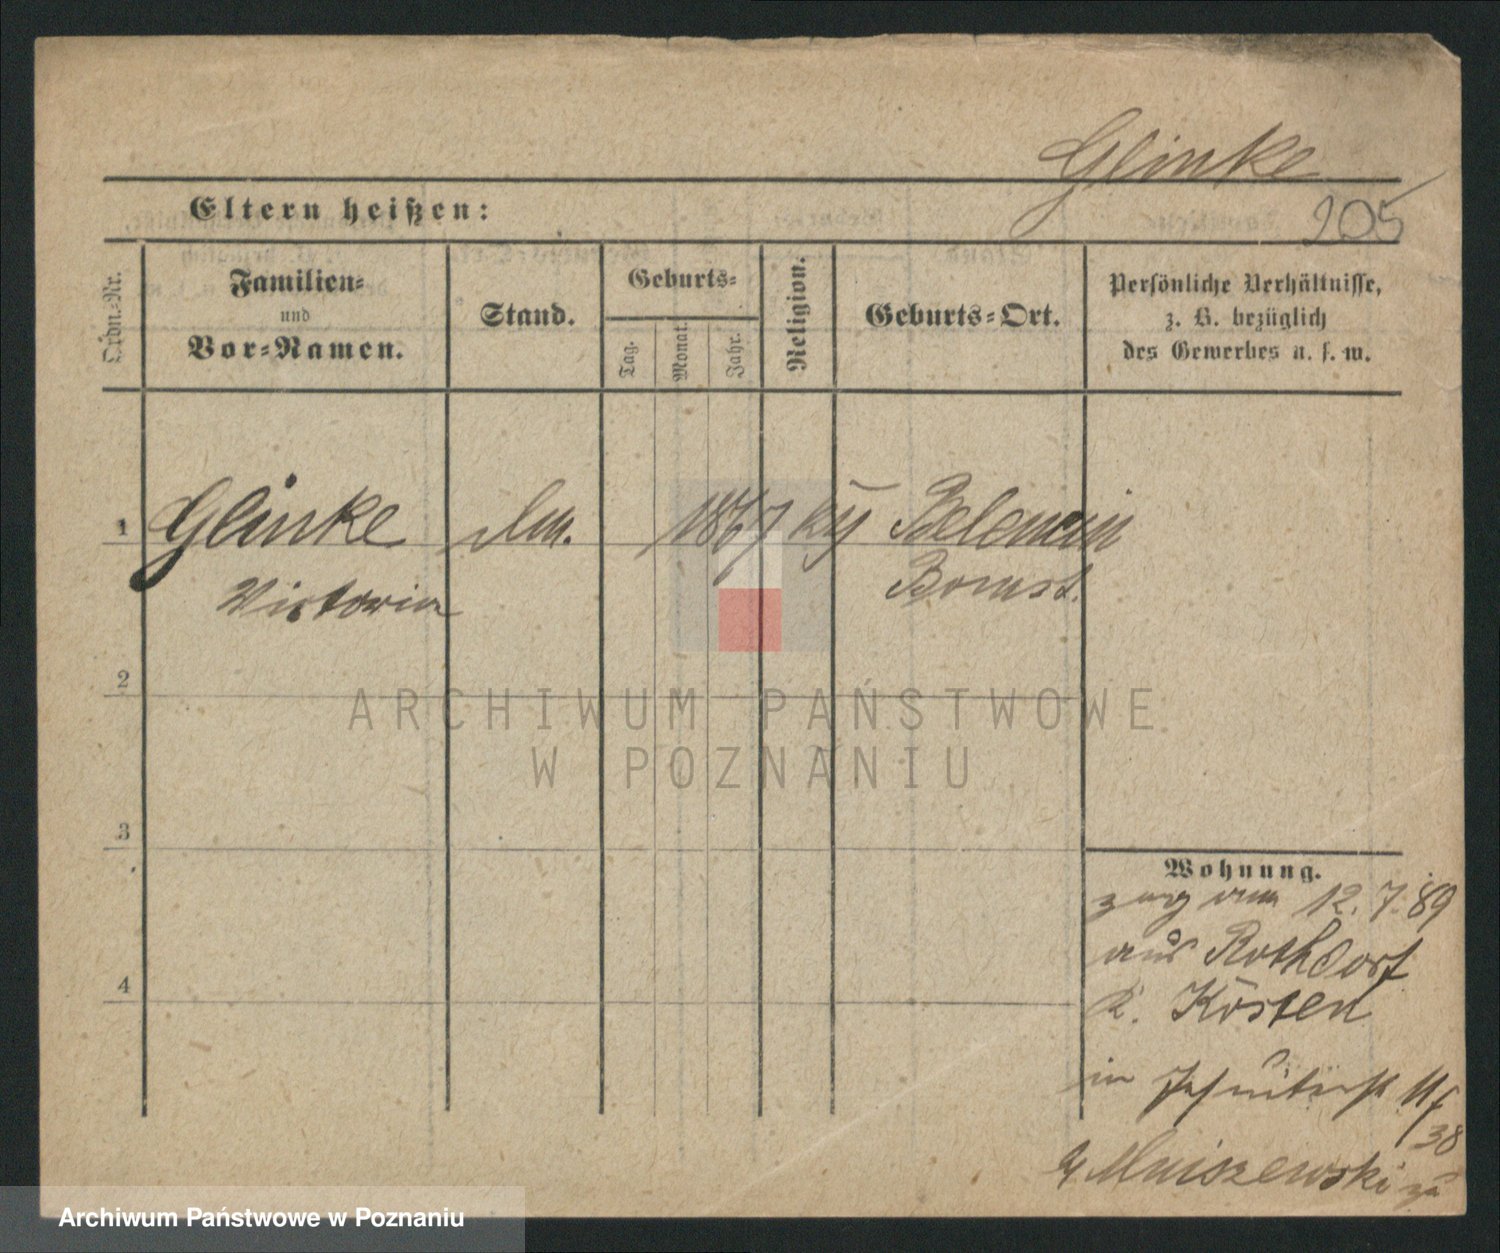 Glinke
205
Eltern heißen:
Ordn.-Nr.
Familien-
und
Vor-Namen.
Stand.
Geburts-
Tag.
Monat.
Jahr.
Religion.
Geburts-Ort.
Persönliche Verhältnisse,
z. B. bezüglich
des Gewerbes u. s. w.
1 Glinke 1867
Victoria Bomst.
2
ARCHIWUM PAŃSTWOWE
W POZNANIU
3
Wohnung.
zug vom 12.7.89
aus Rothdorf
K. Kosten
4
in Jesuitenst 11
38
Mniszewski
Archiwum Państwowe w Poznaniu